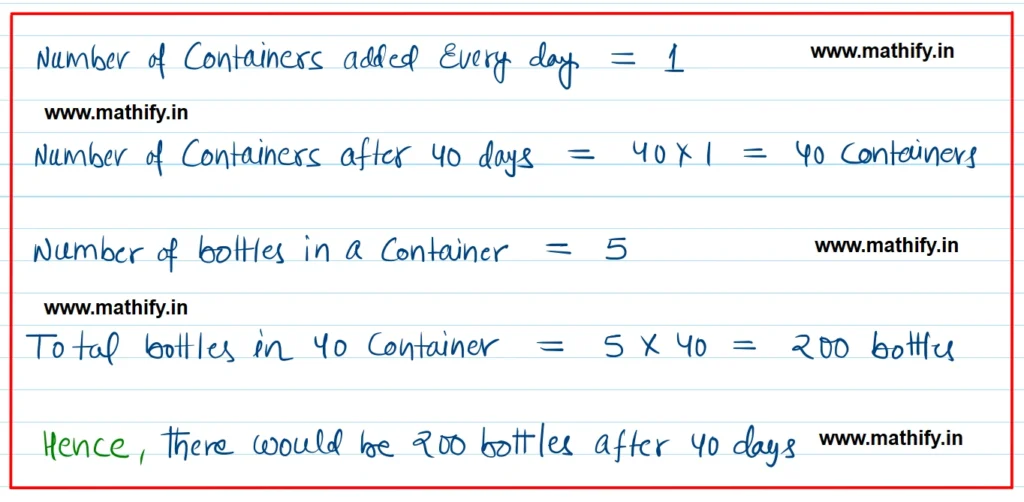 Number of Containers added Every day = 1 www.mathify.in
www.mathify.in
Number of Containers after 40 days = 40 X 1 = 40 Containers
Number of bottles in a Container = 5 www.mathify.in
www.mathify.in
Total bottles in 40 Container = 5 X 40 = 200 bottles
Hence, there would be 200 bottles after 40 days www.mathify.in